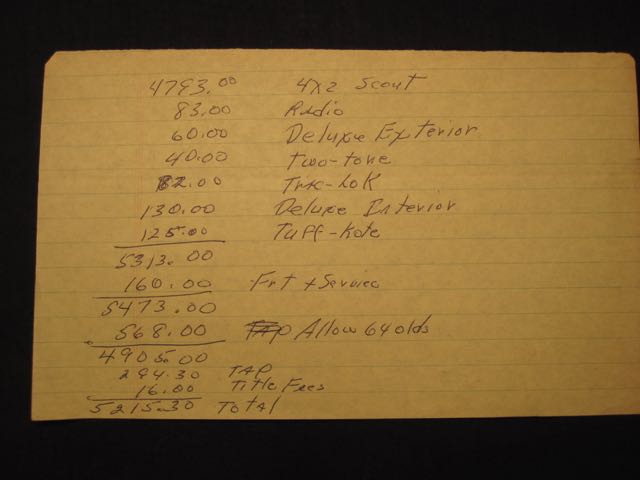 4793.00 4x2 Scout
83.00 Radio
60.00 Deluxe Exterior
40.00 Two-tone
82.00 Trac-Lok
130.00 Deluxe Interior
125.00 Tuff-Kote
5313.00
160.00 Frt + Service
5473.00
568.00 Allow 64 olds
4905.00
294.30
16.00 Title Fees
5215.30 Total